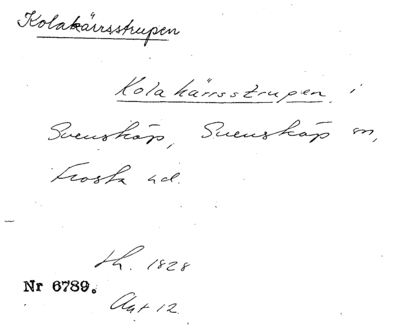 Kolakärrsstrupen
Kolakärrsstrupen i
Svenskäp, Svensköp sn,
Frosta hd.
1828
Nr 6789.
Akt 12